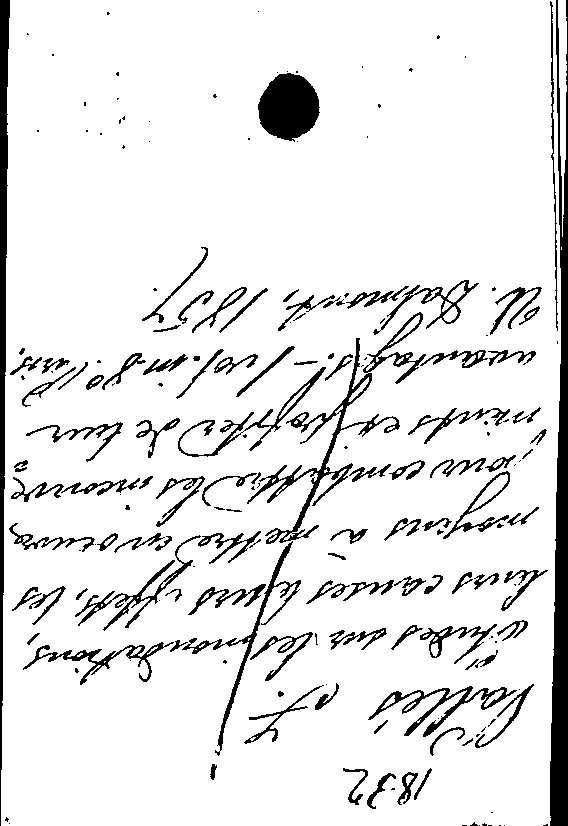 1832
Vallès F.
études sur les inondations,
leurs causes leurs effets, les
moyens à mettre en oeuvre
pour combattre les inconvé=
nients et profiter de leur
avantages. - 1 vol. in-8° Paris,
V. Dalmont, 1857.